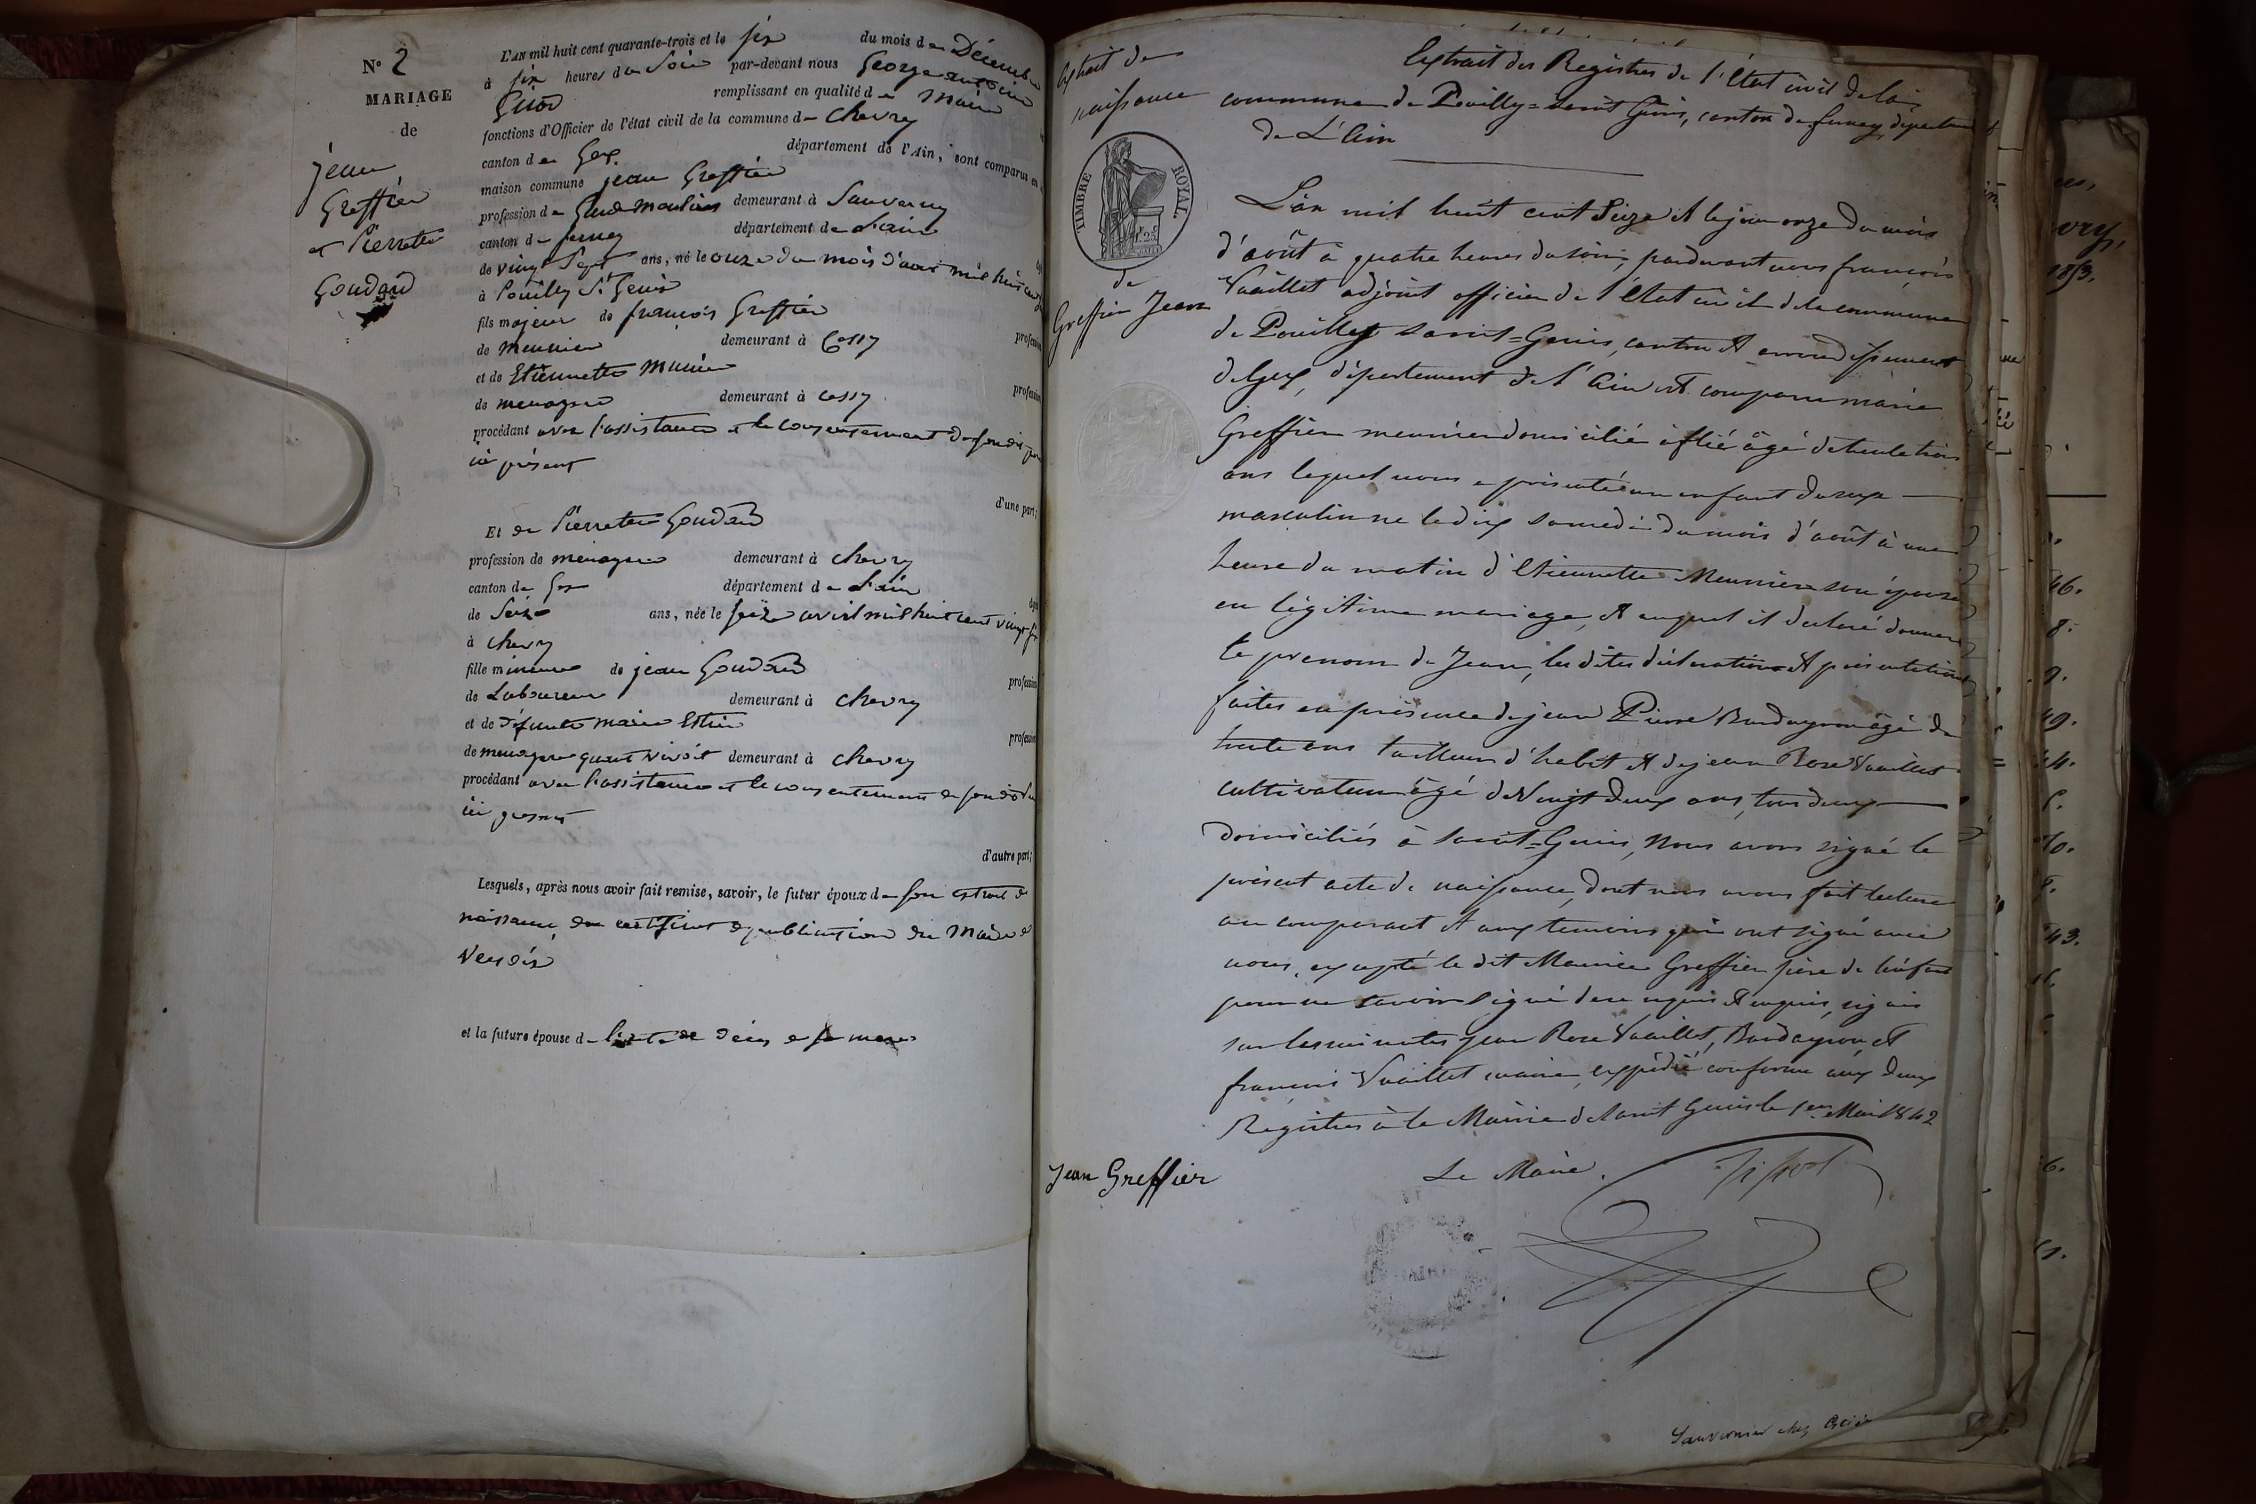 N° 2
MARIAGE
de
jean
Greffier
et Pierrette
Goudard
L'AN mil huit cent quarante-trois et le six du mois de Décembre
à six heures du Soir par-devant nous George antoine
Girod remplissant en qualité de Maire
fonctions d'Officier de l'état civil de la commune de Chevry
canton de Gex département de l'Ain, sont comparus en
maison commune jean Greffier
profession de Garde moulins demeurant à Sauverny
canton de ferney département de L'ain
de vingt Sept ans, né le onze du mois d'aout mil huit cent
à Pouilly St Genis
fils majeur de françois Greffier profession
de meunier demeurant à Cessy
et de Etiennette Munier profession
de menagere demeurant à Cessy
procédant avec l'assistance et le consentement de son dit père
ici présent
d'une part;
Et de Pierrette Goudard
profession de menagere demeurant à chevry
canton de Gex département de L'ain
de Seize ans, née le seize avril mil huit cent vingt
à chevry
fille mineure de jean Goudard profession
de Laboureur demeurant à chevry
et de défunte marie Estier profession
de menagere quant vivoit demeurant à chevry
procédant avec l'assistance et le consentement de son dit
ici present
d'autre part;
Lesquels, après nous avoir fait remise, savoir, le futur époux de son extrait de
naissance, du certificat de publication du Maire de
Versoix
et la future épouse d l'acte de décès de sa mere
Extrait de
naissance
TIMBRE ROYAL
de
Greffier Jean
Extrait des Registres de l'État civil de la
commune de Pouilly=Saint Genis, canton de ferney, département
de L'Ain
L'an mil huit cent Seize et le jour onze du mois
d'août à quatre heures du soir, pardevant nous françois
Vuaillet adjoint officier de l'état civil de la commune
de Pouilly saint=Genis, canton et arrondissement
de Gex, département de l'Ain est comparu
Greffier meunier domicilié à flié âgé de trente trois
ans lequel nous a présenté un enfant du sexe
masculin né le dix samedi du mois d'août à une
heure du matin d'Etiennette Meunier son épouse
en légitime mariage, et auquel il déclaré donner
le prenom de Jean, les dites déclaration et présentation
faites en présence de jean Pierre Bardayron âgé de
trente ans tailleur d'habit et de jean Roze Vuaillet
cultivateur âgé de Vingt deux ans, tous deux
domiciliés à Saint=Genis, Nous avons signé le
présent acte de naissance, dont nous avons fait lecture
au comparant et aux temoins qui ont signé avec
nous, excepté le dit Maurice Greffier père de l'enfant
pour ne savoir signé de ce requis et enquis, signés
sur les minutes jean Roze Vuaillet, Bardayron et
françois Vuaillet maire, expédié conforme aux deux
Registres à la Mairie de Saint Genis le 1er Mai 1842
Jean Greffier
Le Maire.